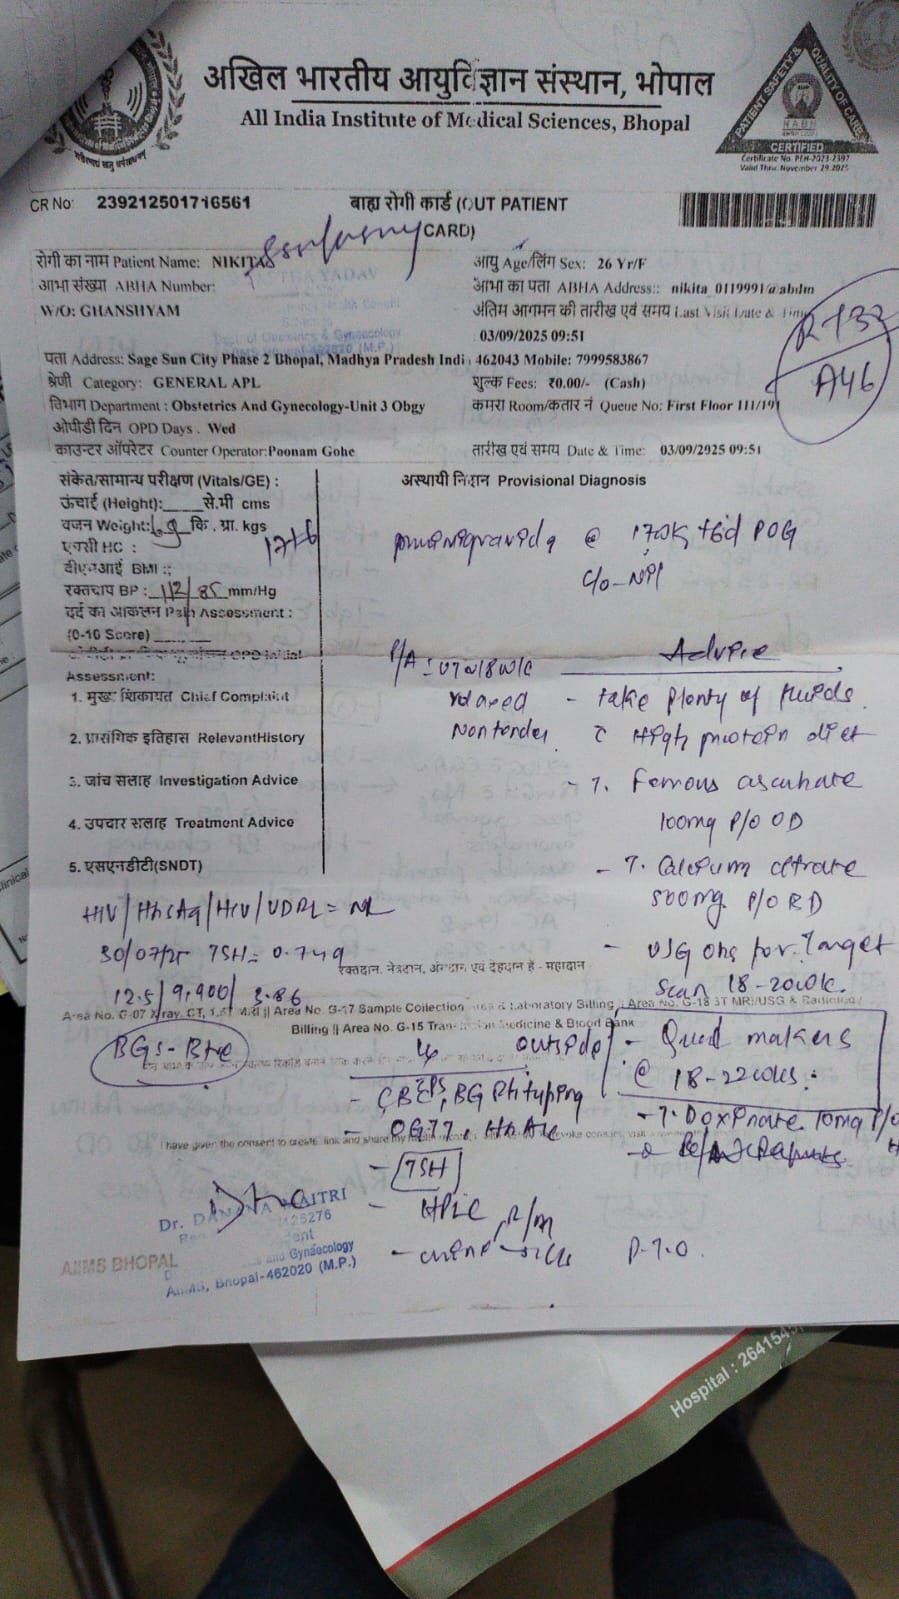 अखिल भारतीय आयुर्विज्ञान संस्थान, भोपाल
All India Institute of Medical Sciences, Bhopal
PATIENT SAFETY & QUALITY OF CARE
NABH
CERTIFIED
Certificate No. PEH-2023-2397
Valid Thru. November 29, 2025
CR No: 239212501716561
बाह्य रोगी कार्ड (OUT PATIENT CARD)
रोगी का नाम Patient Name: NIKITA
आयु Age/लिंग Sex: 26 Yr/F
आभा संख्या ABHA Number:
आभा का पता ABHA Address:: nikita_0119991@abdm
W/O: GHANSHYAM
अंतिम आगमन की तारीख एवं समय Last Visit Date & Time
: 03/09/2025 09:51
R-132
A46
पता Address: Sage Sun City Phase 2 Bhopal, Madhya Pradesh Indi 462043 Mobile: 7999583867
श्रेणी Category: GENERAL APL
शुल्क Fees: ₹0.00/- (Cash)
विभाग Department : Obstetrics And Gynecology-Unit 3 Obgy
कमरा Room/कतार नं Queue No: First Floor 111/191
ओपीडी दिन OPD Days . Wed
काउन्टर ऑपरेटर Counter Operator:Poonam Gohe
तारीख एवं समय Date & Time: 03/09/2025 09:51
संकेत/सामान्य परीक्षण (Vitals/GE) :
अस्थायी निदान Provisional Diagnosis
ऊंचाई (Height):____से.मी cms
वजन Weight: कि. ग्रा. kgs
17+6
एचसी HC :
बीएमआई BMI :;
रक्तचाप BP : 112/85 mm/Hg
दर्द का आकलन Pain Assessment :
(0-10 Score)
primigravida @ 17wk+6d POG
c/o - NPI
OPD Initial
Assessment:
1. मुख्य शिकायत Chief Complaint
2. प्रासंगिक इतिहास RelevantHistory
3. जांच सलाह Investigation Advice
4. उपचार सलाह Treatment Advice
5. एसएनडीटी(SNDT)
P/A :
relaxed
Non tender
Advice
- take plenty of fluids
c High protein diet
- T. Ferrous ascorbate
100mg P/O OD
- T. Calcium citrate
500mg P/O BD
- USG obs for Target
scan 18-20wk.
HIV/HbsAg/HCV/VDRL = NR
30/07/25 TSH = 0.749
रक्तदान, नेत्रदान, अंगदान एवं देहदान हैं - महादान
12.5/9,900/3.86
Area No. G-07 X-ray, CT, MRI || Area No. G-17 Sample Collection Area & Laboratory Billing Area No. G-18 3T MRI/USG & Radiology
Billing || Area No. G-15 Transfusion Medicine & Blood Bank
BGs - B+ve
outside
- Quad makers
@ 18-22wks.
- CBC, BG Rh typing
- OGTT, HbA1c
- T. Doxinate 10mg P/O
I have given the consent to create, link and share my
- TSH
- HPLC
- urine R/M
P.T.O.
Dr. MAITRI
and Gynaecology
AIIMS, Bhopal-462020 (M.P.)
AIIMS BHOPAL
Hospital : 264154